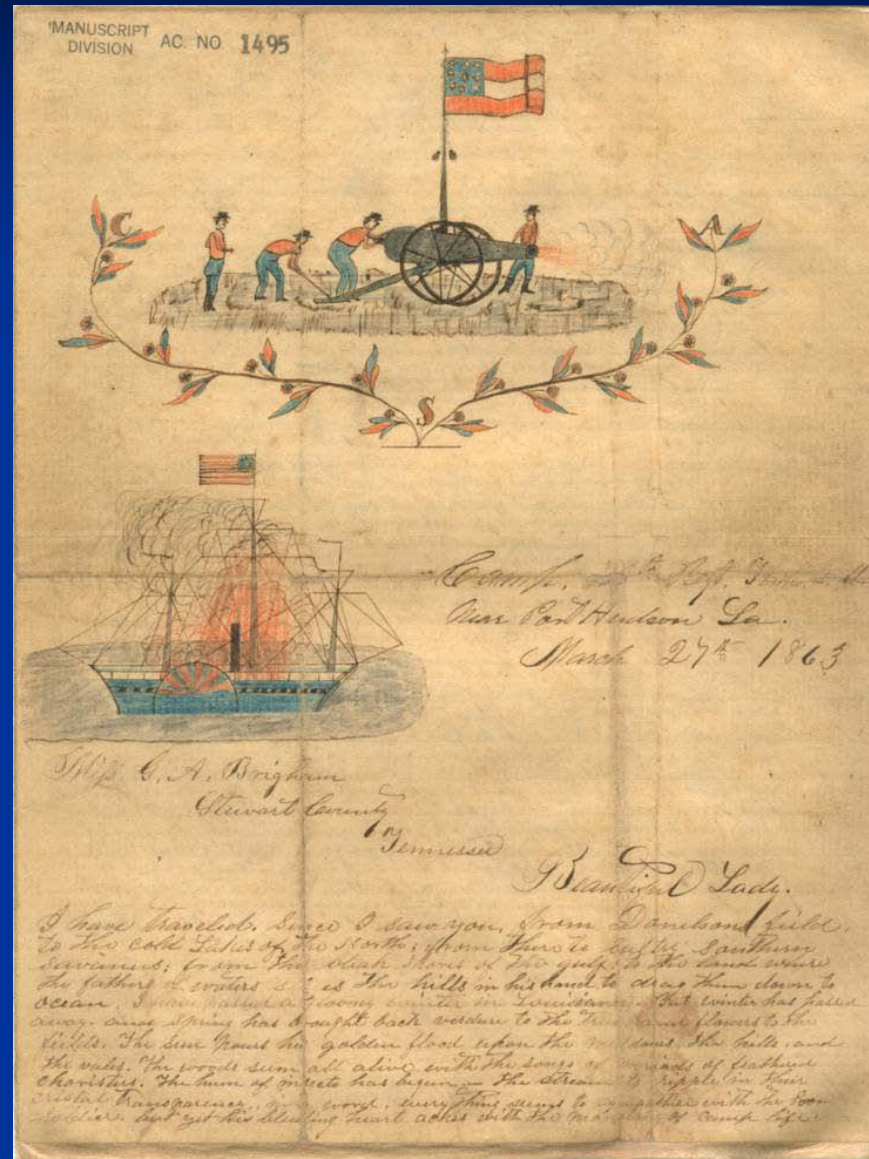 MANUSCRIPT
DIVISION AC. NO 1495
C A
S
Camp, Regt.
Near Port Hudson La.
March 27th 1863
Miss G. A. Brigham
Stewart County
Tennessee
Beautiful Lady.
I have traveled, since I saw you, from Donelson field,
to the cold Lakes of the North; from there to Southern
from the bleak shores of the gulf to the land where
the father of waters the hills in his hand to drag them down to
ocean. I have passed a gloomy winter in Louisiana. But winter has passed
away and Spring has brought back verdure to the trees and flowers to the
fields. The sun pours his golden flood upon the the hills, and
the vales. The woods seem all alive with the songs of of feathered
choristers. The hum of insects has begun the to ripple in their
cristal transparency, word, everything seems to with the poor
soldier, but yet his bleeding heart aches with the of camp life.